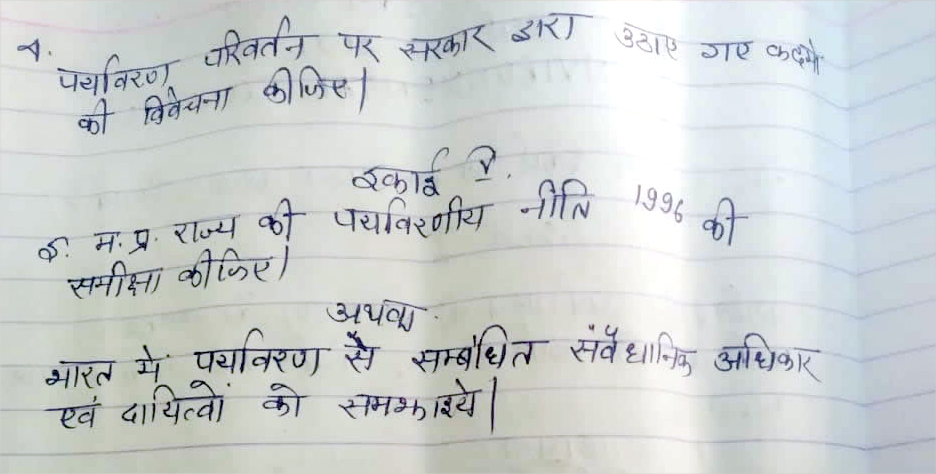 ४. पर्यावरण परिवर्तन पर सरकार द्वारा उठाए गए कदमो
की विवेचना कीजिए।
इकाई V.
इ. म. प्र. राज्य की पर्यावरणीय नीति 1996 की
समीक्षा कीजिए।
अथवा
भारत में पर्यावरण सै सम्बंधित संवैधानिक अधिकार
एवं दायित्वों को समझाइये।